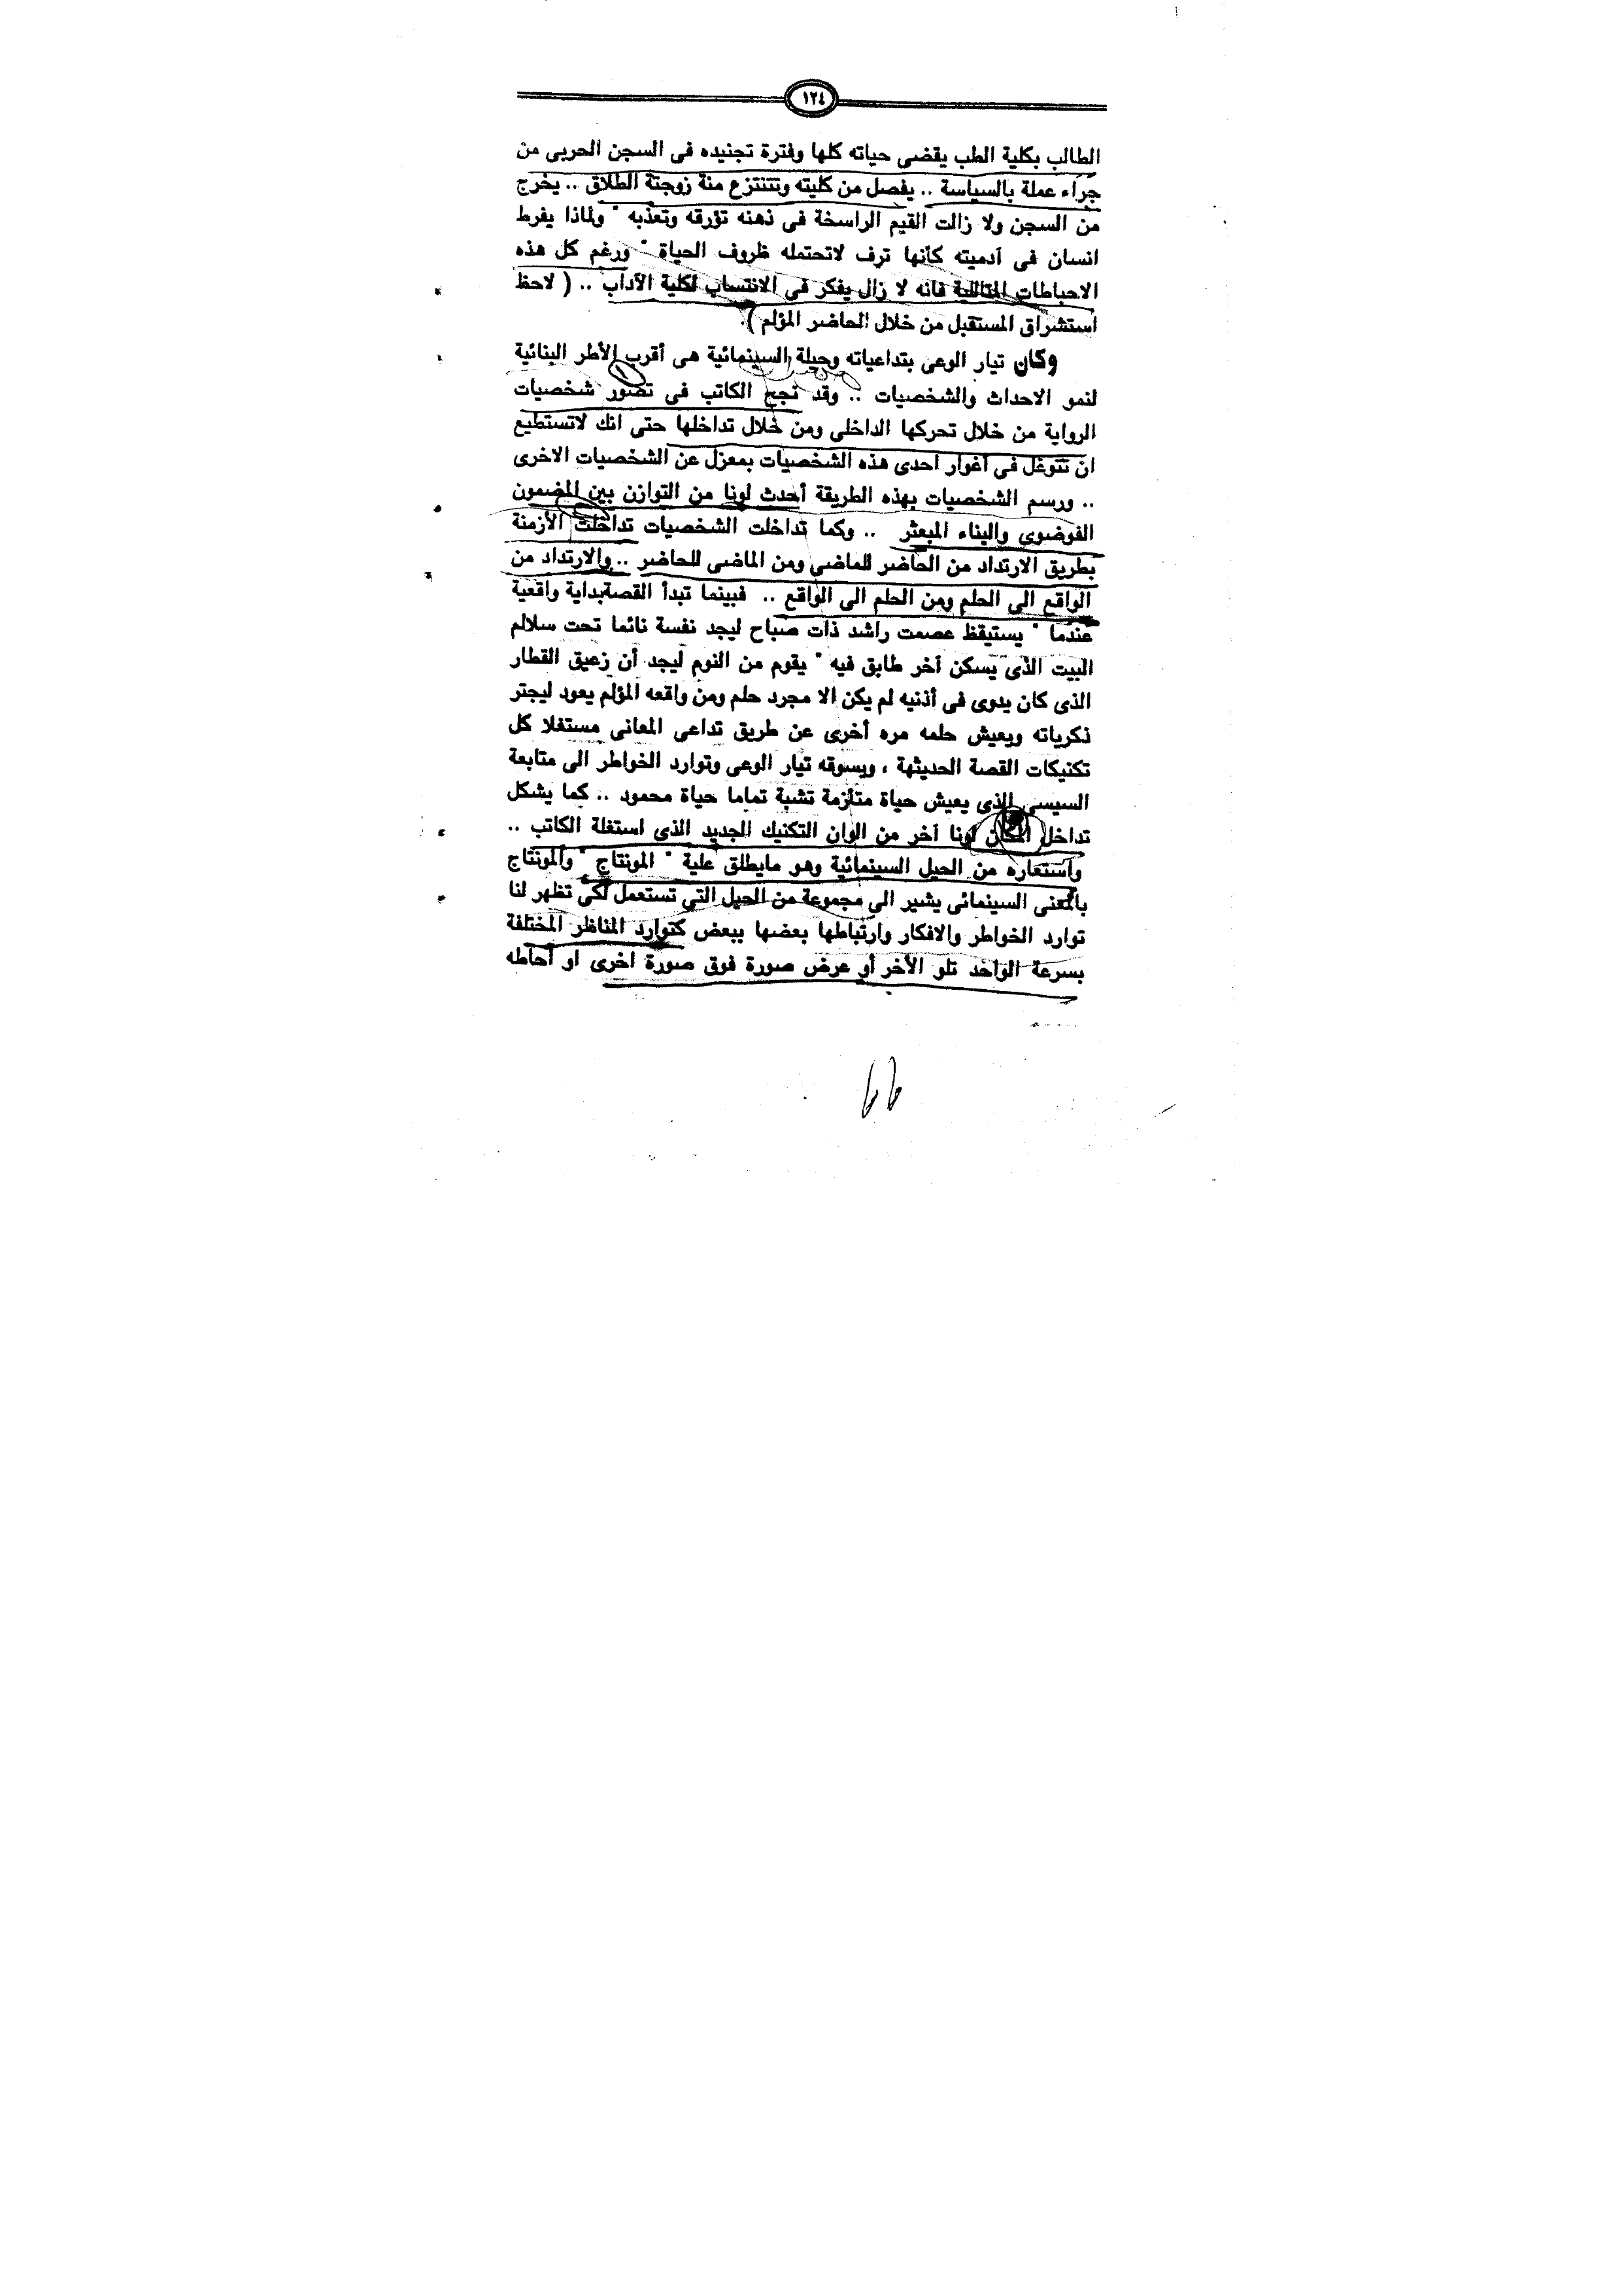 ١٢٤
الطالب بكلية الطب يقضى حياته كلها وفترة تجنيده فى السجن الحربى من
جراء عملة بالسياسة .. يفصل من كليته وتنتزع منة زوجتة الطلاق .. يخرج
من السجن ولا زالت القيم الراسخة فى ذهنه تؤرقه وتعذبه " ولماذا يفرط
انسان فى أدميته كأنها ترف لاتحتمله ظروف الحياة " ورغم كل هذه
الاحباطات المتتالية فانه لا زال يفكر فى الانتساب لكلية الآداب .. ( لاحظ
استشراق المستقبل من خلال الحاضر المؤلم ).
وكان تيار الوعى بتداعياته وحيلة السينمائية هى أقرب الأطر البنائية
لنمو الاحداث والشخصيات .. وقد نجح الكاتب فى تصور شخصيات
الرواية من خلال تحركها الداخلى ومن خلال تداخلها حتى انك لاتستطيع
ان تتوغل فى أغوار احدى هذه الشخصيات بمعزل عن الشخصيات الاخرى
.. ورسم الشخصيات بهذه الطريقة أحدث لونا من التوازن بين المضمون
الفوضوى والبناء المبعثر .. وكما تداخلت الشخصيات تداخلت الأزمنة
بطريق الارتداد من الحاضر للماضى ومن الماضى للحاضر .. والارتداد من
الواقع الى الحلم ومن الحلم الى الواقع .. فبينما تبدأ القصةبداية واقعية
عندما " يستيقظ عصمت راشد ذات صباح ليجد نفسة نائما تحت سلالم
البيت الذى يسكن أخر طابق فيه " يقوم من النوم ليجد أن زعيق القطار
الذى كان يدوى فى أذنيه لم يكن الا مجرد حلم ومن واقعه المؤلم يعود ليجتر
ذكرياته ويعيش حلمه مره أخرى عن طريق تداعى المعانى مستغلا كل
تكتيكات القصة الحديثهة ، ويسوقه تيار الوعى وتوارد الخواطر الى متابعة
السيسى الذى يعيش حياة متأزمة تشبة تماما حياة محمود .. كما يشكل
تداخل المكان لونا أخر من الوان التكنيك الجديد الذى استغلة الكاتب ..
واستعاره من الحيل السينمائية وهو مايطلق علية " المونتاج " والمونتاج
بالمعنى السينمائى يشير الى مجموعة من الحيل التى تستعمل لكى تظهر لنا
توارد الخواطر والافكار وارتباطها بعضها ببعض كتوارد المناظر المختلفة
بسرعة الواحد تلو الأخر أو عرض صورة فوق صورة اخرى او أحاطه